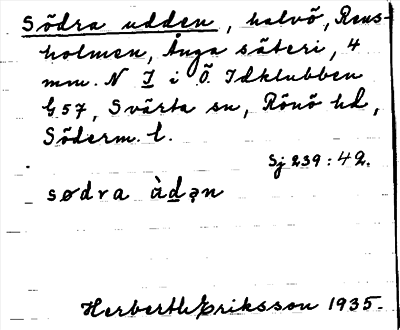 Södra udden, halvö, Rens-
holmen, Ånga säteri, 4
mm. N I i Ö. Idklubben
G 57, Svärta sn, Rönö hd,
Söderm. l.
Sj 239:42.
sødra àdən
Herberth Eriksson 1935.